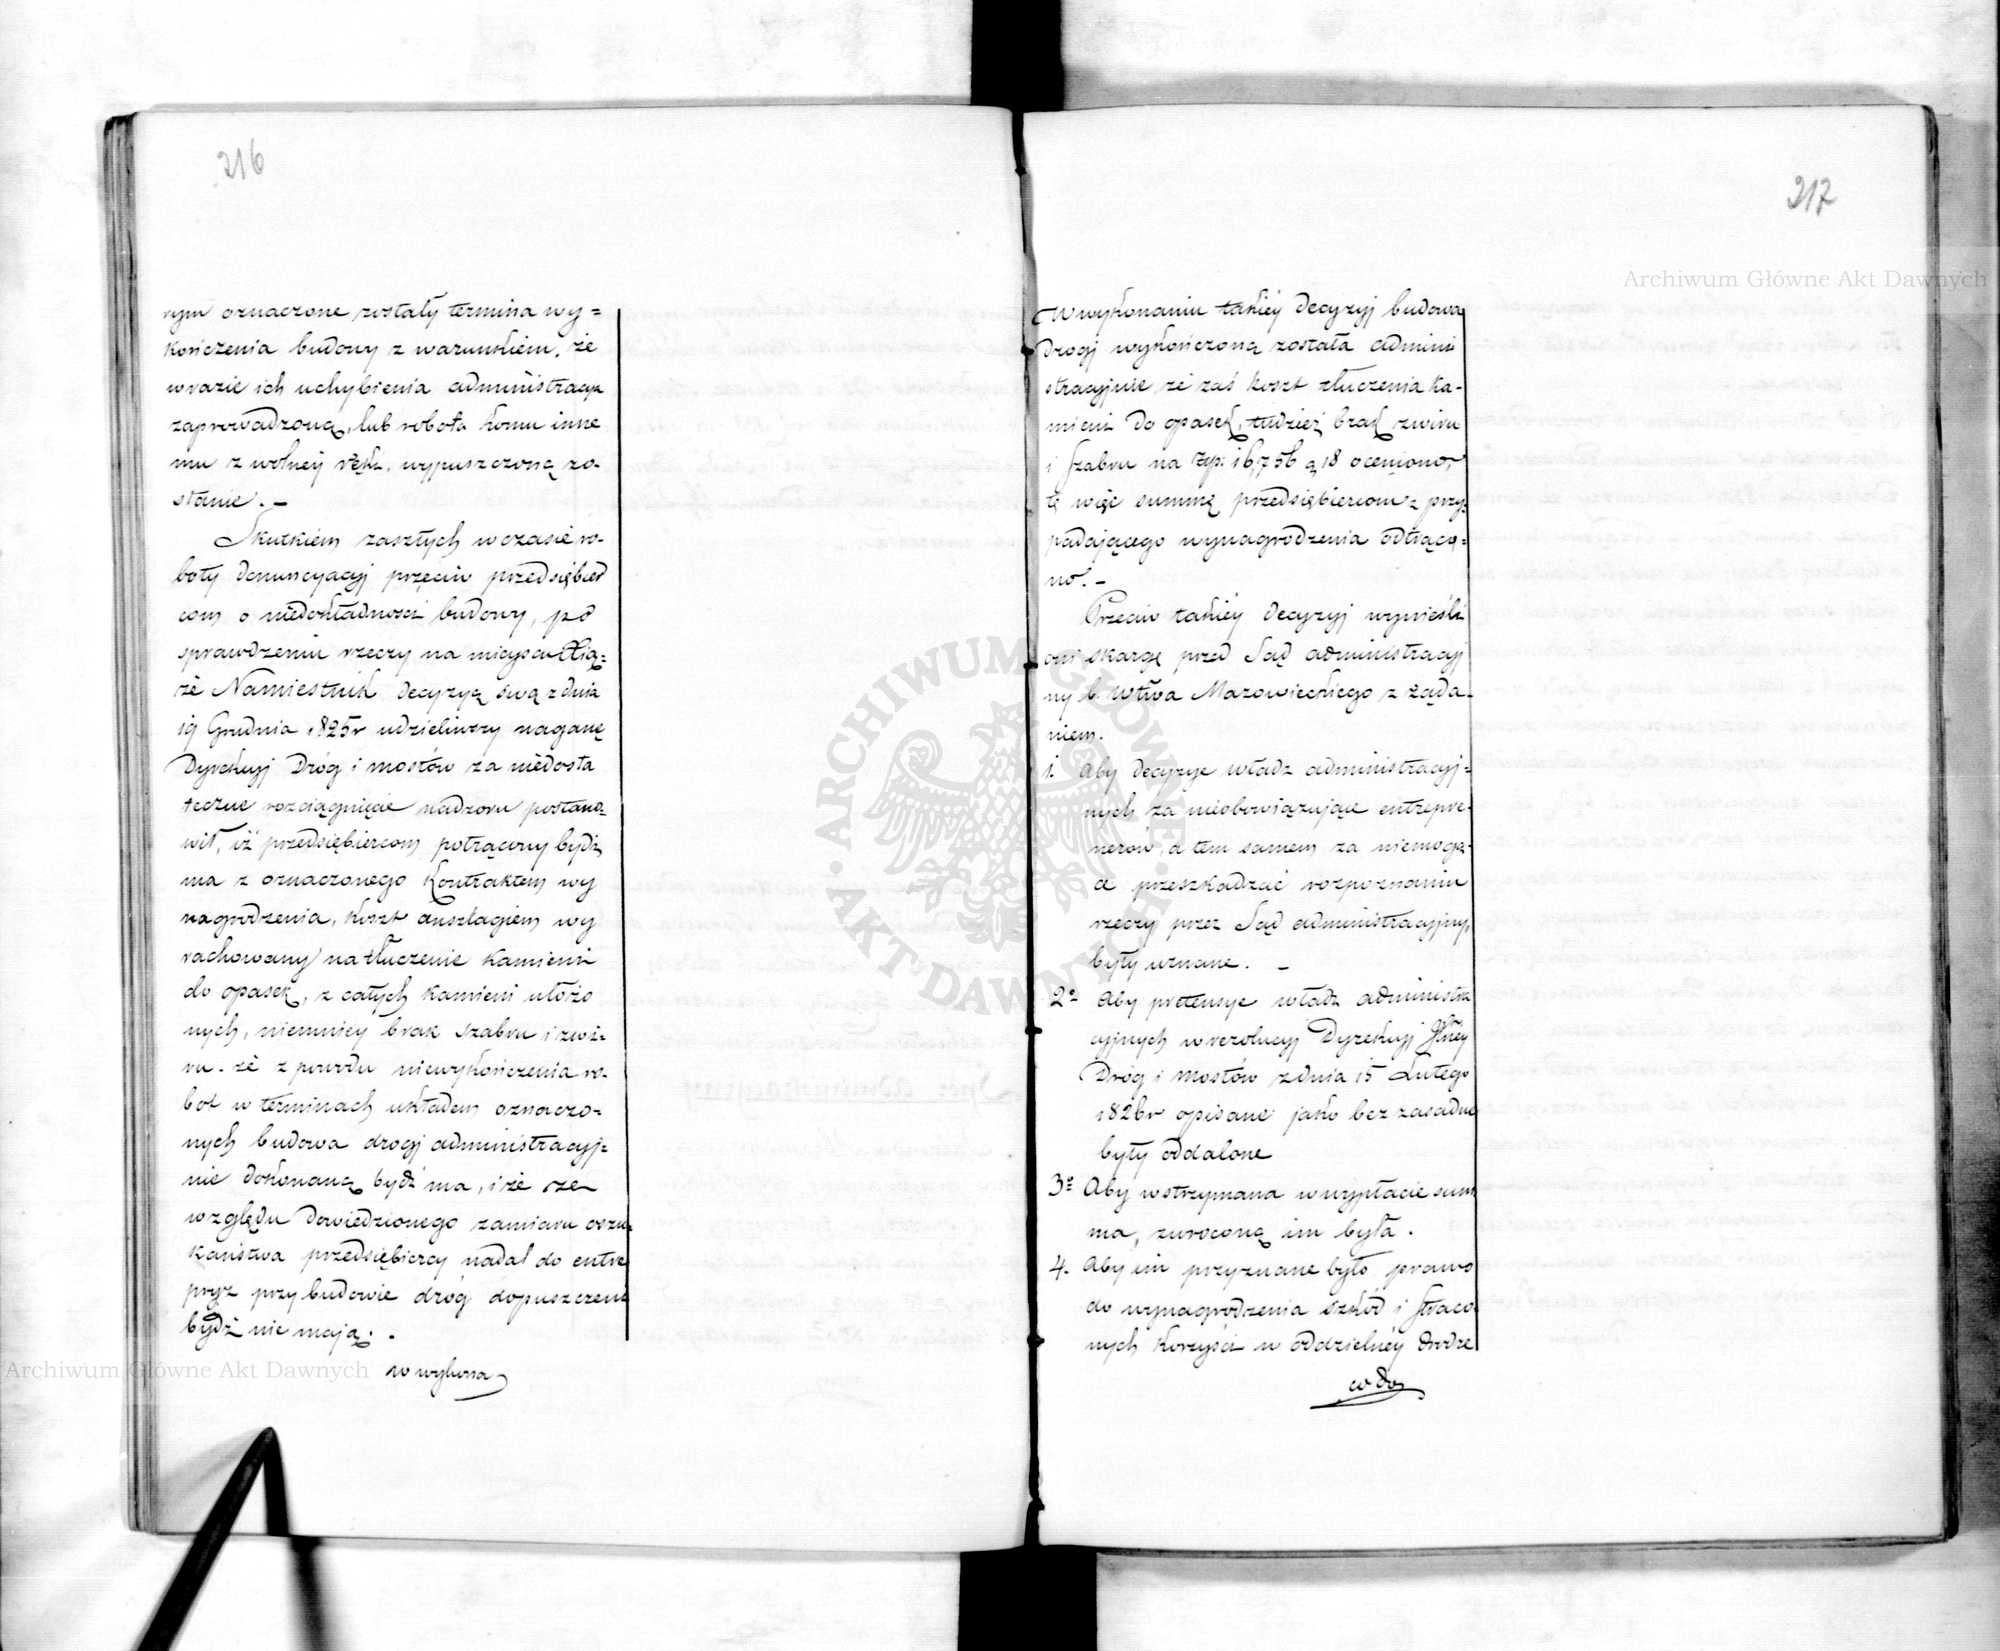 216
rym oznaczone zostały termina wy=
kończenia budowy z warunkiem, że
w razie ich uchybienia administracya
zaprowadzoną, lub robota komu inne
mu z wolney ręki wypuszczoną zo-
stanie. -
Skutkiem zaszłych w czasie ro-
boty denuncyacyj przeciw przedsiębier
com o niedokładności budowy, po
sprawdzeniu rzeczy na mieyscu Xią-
że Namiestnik decyzyą swą z dnia
19 Grudnia 1825r udzieliwszy naganę
Dyrekcyj Dróg i mostów za niedosta
teczne rozciągnięcie nadzoru postano-
wił, iż przedsiębiercom potrącony bydź
ma z oznaczonego Kontraktem wy
nagrodzenia, koszt anszlagiem wy
rachowany na tłuczenie kamieni
do opasek, z całych kamieni ułożo
nych, niemniey brak szabru i żwi-
ru. że z powodu niewykończenia ro-
bot w terminach układem oznaczo-
nych budowa drogi administracyj-
nie dokonaną bydź ma, i że ze
względu dowiedzionego zamiaru oszu-
kaństwa przedsiębiercy nadal do entre
pryz przy budowie dróg dopuszczeni
bydź nie mają. .
w wykona
217
W wykonaniu takiéy decyzyj budowa
drogi wykończoną została admini
stracyjnie, że zaś koszt tłuczenia ka-
mieni do opasek, tudzież brak żwiru
i szabru na złp: 16,756 g 18 oceniono,
tę więc summę przedsiębiercom z przy-
padającego wynagrodzenia odtrąco-
no. -
Przeciw takiéy decyzyj wynieśli
oni skargę przed Sąd administracyj
ny b. Wtwa Mazowieckiego z żąda-
niem.
1. Aby decyzye władz administracyj-
nych za nieobowiązujące entrepre-
nerów, a tem samem za niemogą-
ce przeszkadzać rozpoznaniu
rzeczy przez Sąd administracyjny,
były uznane. -
2o Aby pretensye władz administra
cyjnych w rezolucyj Dyrekcyj Głłney
Dróg i Mostów z dnia 15 Lutego
1826r opisane jako bezzasadne
były oddalone
3o Aby wstrzymana w wypłacie sum
ma, zwróconą im była.
4. Aby im przyznane było prawo
do wynagrodzenia szkód i straco
nych korzyści w oddzielnéy drodze
co do
Archiwum Główne Akt Dawnych
Archiwum Główne Akt Dawnych
ARCHIWUM GŁÓWNE AKT DAWNYCH